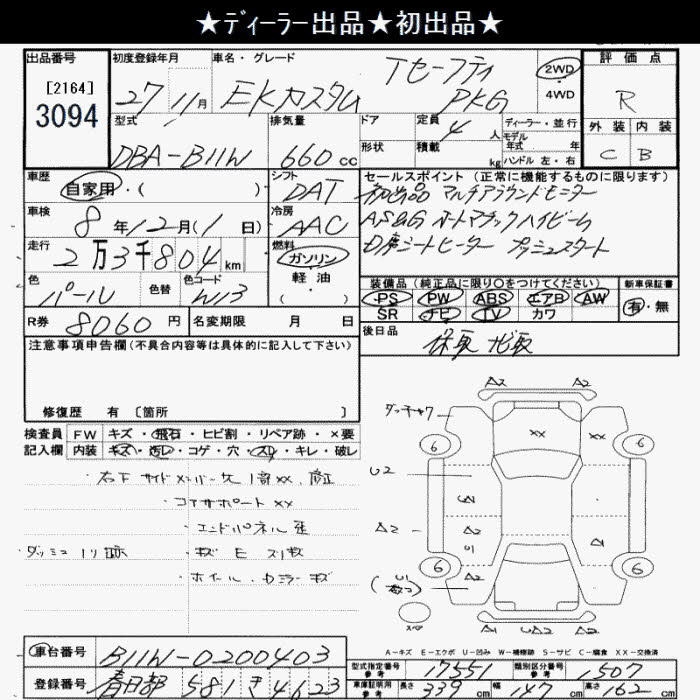 ★ディーラー出品★初出品★
出品番号
[2164]
3094
初度登録年月
27 11月
車名・グレード
EKカスタム
Tセーフティ
PKG
2WD
4WD
評価点
R
外装 内装
C B
型式
DBA-B11W
排気量
660cc
ドア
形状
定員
4人
積載
kg
ディーラー・並行
モデル
年式 年
ハンドル 左・右
車歴
自家用・( )
シフト
DAT
セールスポイント(正常に機能するものに限ります)
初出品 マルチアラウンドモニター
AS&G オートマチックハイビーム
D席シートヒーター プッシュスタート
車検
8年12月(1日)
冷房
AAC
走行
2万3千804km
燃料
ガソリン
軽油
( )
色
パール
色替
色コード
W13
装備品(純正品に限り○をつけてください)
PS PW ABS エアB AW
SR ナビ TV カワ
新車保証書
有・無
R券 8060円
名変期限 月 日
後日品
保取 ナビ取
注意事項申告欄(不具合内容等は具体的に記入して下さい)
修復歴 有〔箇所 〕
検査員
記入欄
FW キズ・飛石・ヒビ割・リペア跡・×要
内装 キズ・汚レ・コゲ・穴・スレ・キレ・破レ
コアサポート XX
・エンドパネル
・ホイール・カラー キズ
A2 A2
XX XX
6 6
U2
A2 A2
U1
A1
6 6
U1
A2
A1 UA2 A2
A−キズ E−エクボ U−凹み W−補修跡 S−サビ C−腐食 XX−交換済
車台番号
B11W-0200403
登録番号
春日部 581 き 4623
型式指定番号
参考
17551
類別区分番号
参考
1507
車庫証明用
参考
長さ 339cm
幅 147cm
高さ 162cm